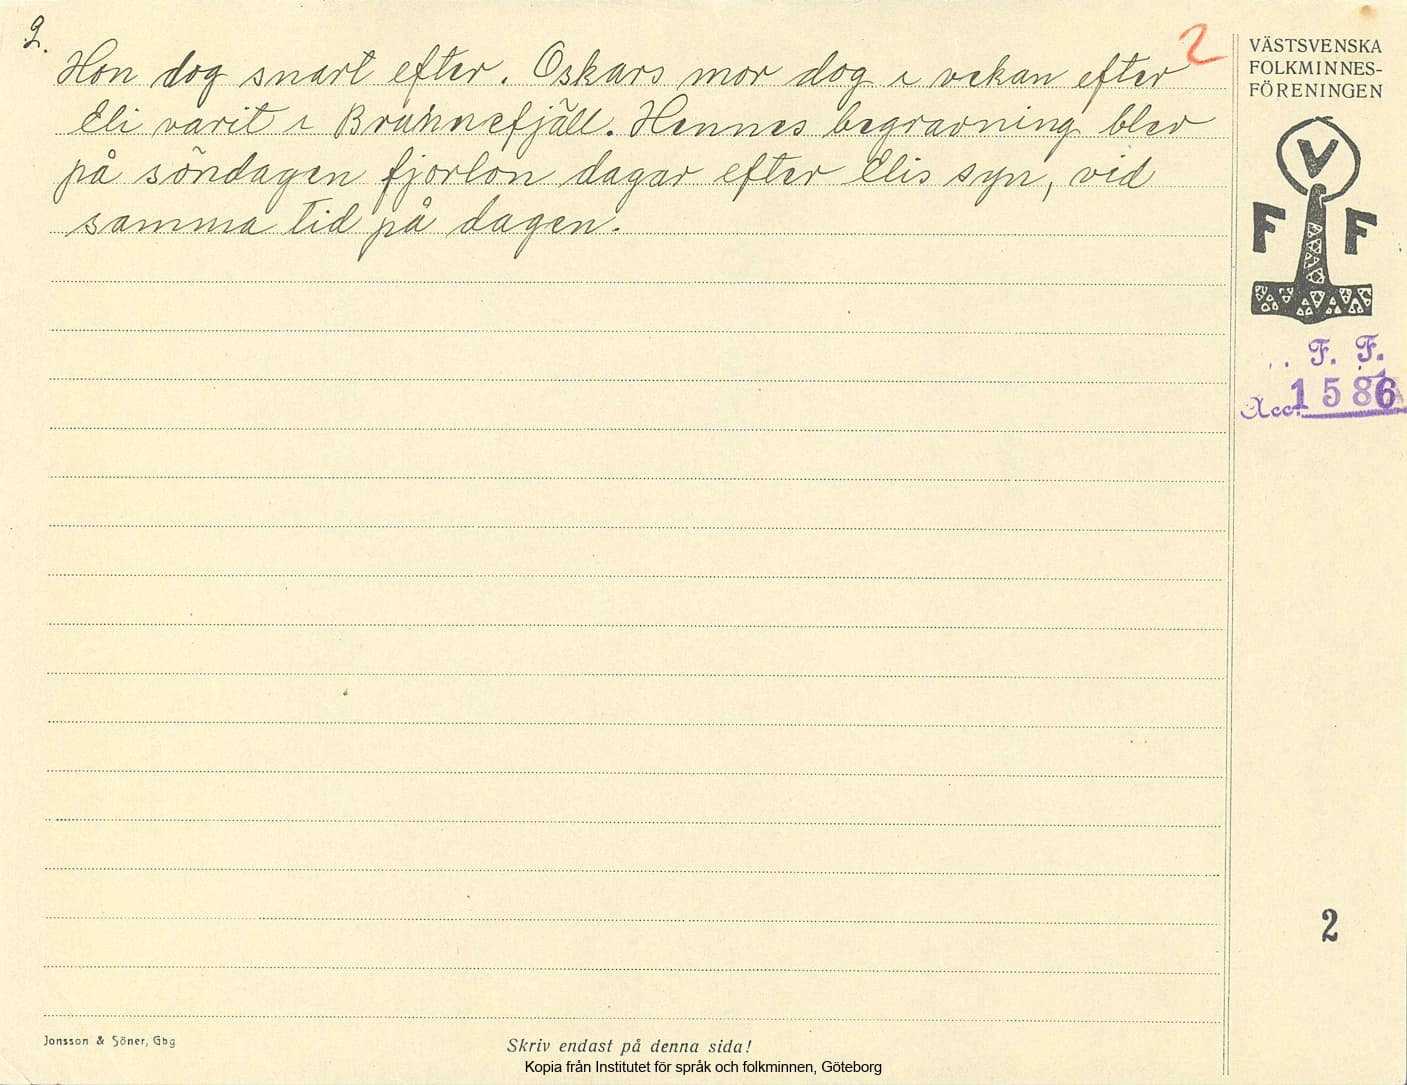 2.
Hon dog snart efter. Oskars mor dog i vekan efter
Eli varit i Brunnefjäll. Hennes begravning blev
på söndagen fjorton dagar efter Elis syn, vid
samma tid på dagen.
2
VÄSTSVENSKA
FOLKMINNES-
FÖRENINGEN
V
F F
F. F.
Acc. 1586
2
Jonsson & Söner, Gbg
Skriv endast på denna sida!
Kopia från Institutet för språk och folkminnen, Göteborg